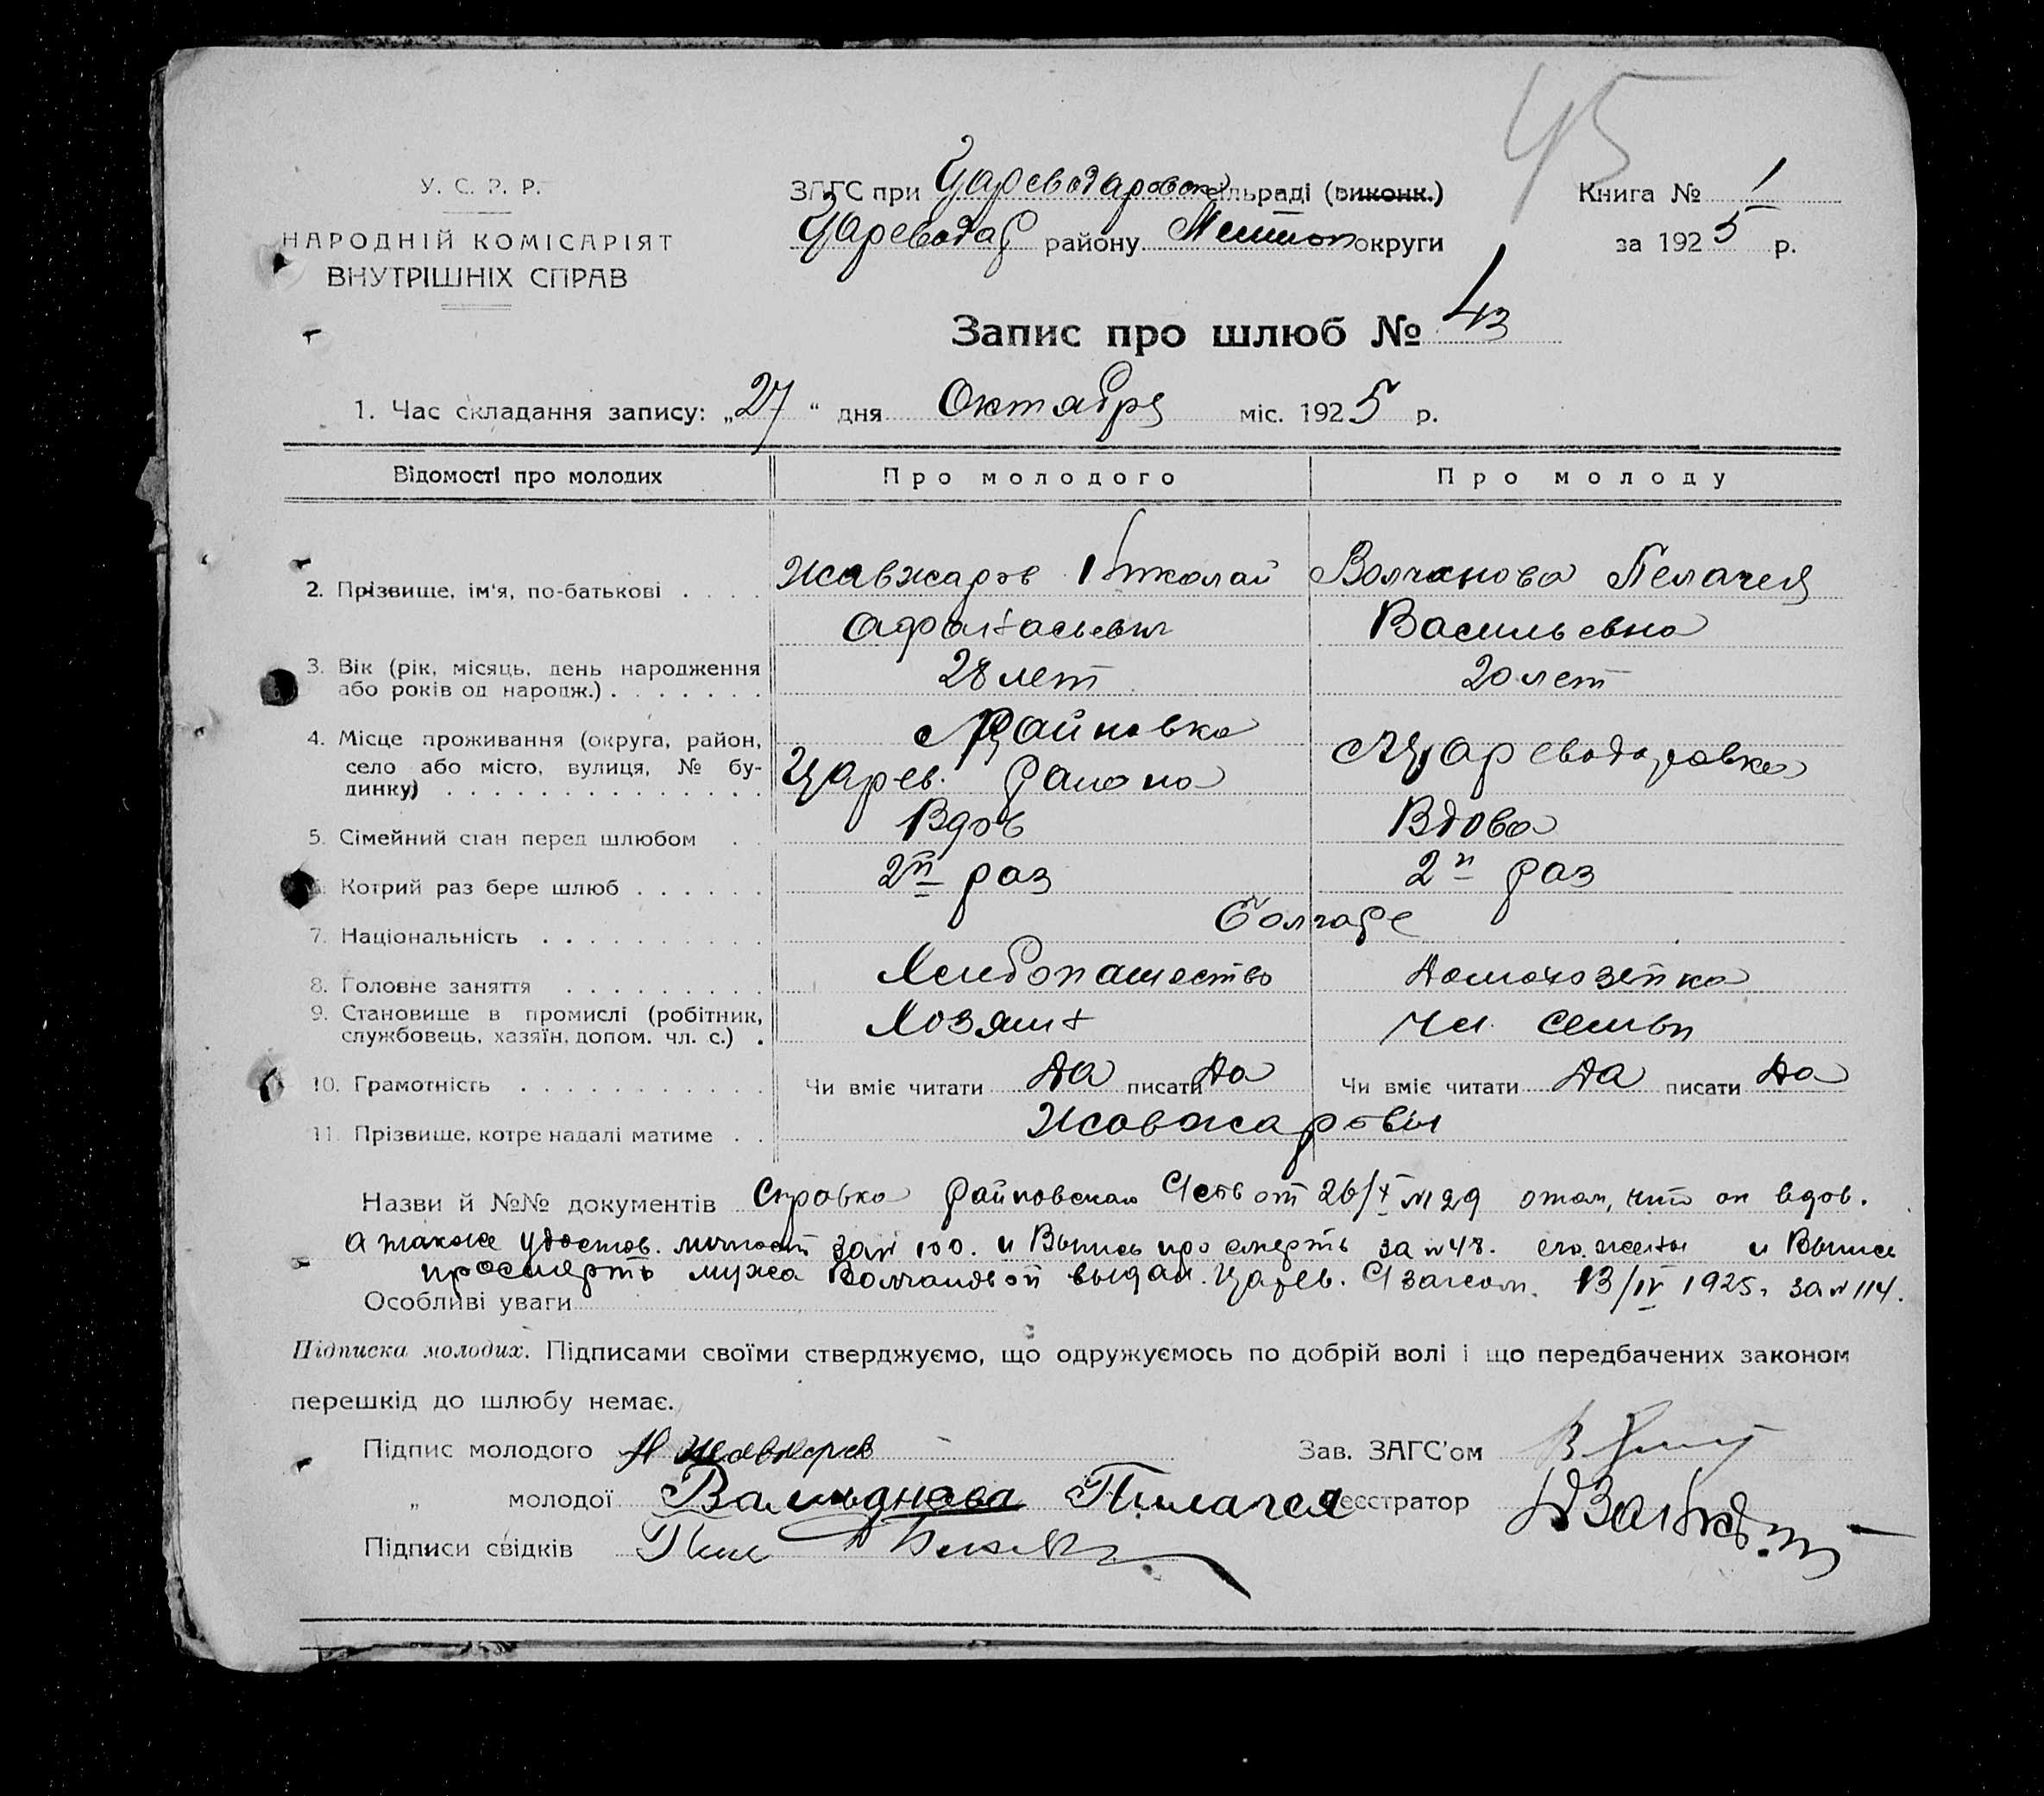 45
У. С. Р. Р.
НАРОДНІЙ КОМІСАРІЯТ
ВНУТРІШНІХ СПРАВ
ЗАГС при Цареводаровск сільраді (виконк.)
Цареводар району Мелитоп округи
Книга № 1
за 1925 р.
Запис про шлюб № 43
1. Час складання запису: „27“ дня Октября міс. 1925 р.
Відомості про молодих Про молодого Про молоду
2. Прізвище, ім'я, по-батькові . . . . Жавжаров Николай Волчанова Пелагея
Афанасьевич Васильевна
3. Вік (рік, місяць, день народження 28 лет 20 лет
або років од народж.) . . . . . . .
4. Місце проживання (округа, район, Райновка Цареводаровка
село або місто, вулиця, № бу- Царев. района
динку) . . . . . . . . . . . . . .
5. Сімейний стан перед шлюбом . . Вдов Вдова
6. Котрий раз бере шлюб . . . . . . 2й раз 2й раз
7. Національність . . . . . . . . . . Болгаре
8. Головне заняття . . . . . . . . . Хлебопашество Домохозяйка
9. Становище в промислі (робітник, Хозяин Чл. семьи
службовець, хазяїн, допом. чл. с.) .
10. Грамотність . . . . . . . . . . . Чи вміє читати да писати да Чи вміє читати да писати да
11. Прізвище, котре надалі матиме . . Жавжаровы
Назви й №№ документів Справка Райновская от 26/X №29 о том, что он вдов.
а также удостов. личност за № 100. и Выпись про смерть за №48. его жены и Выпись
про смерть мужа Волчановой выдан. Царев. 13/IV 1925. за №114.
Особливі уваги
Підписка молодих. Підписами своїми стверджуємо, що одружуємось по добрій волі і що передбачених законом
перешкід до шлюбу немає.
Підпис молодого Н Жавжаров Зав. ЗАГС'ом
„ молодої Пилагея Реєстратор
Підписи свідків